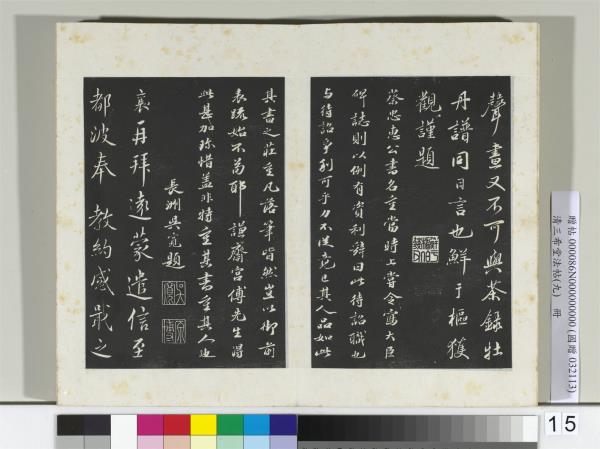 聲畫又不可與茶錄牡
丹譜同日言也鮮于樞獲
觀謹題
蔡忠惠公書名重當時上嘗令寫大臣
碑誌則以例有資利辭曰此待詔職也
與待詔爭利可乎力不從竟已其人品如此
其書之莊重凡落筆皆然豈以御前
表疏始不苟耶謙齋宮傅先生得
此甚加珍惜蓋非特重其書重其人也
長洲吳寬題
襄再拜遠蒙遣信至
都波奉教約感戢之
贈帖 000086N000000000 (國贈 032113)
清三希堂法帖(九) 冊
15